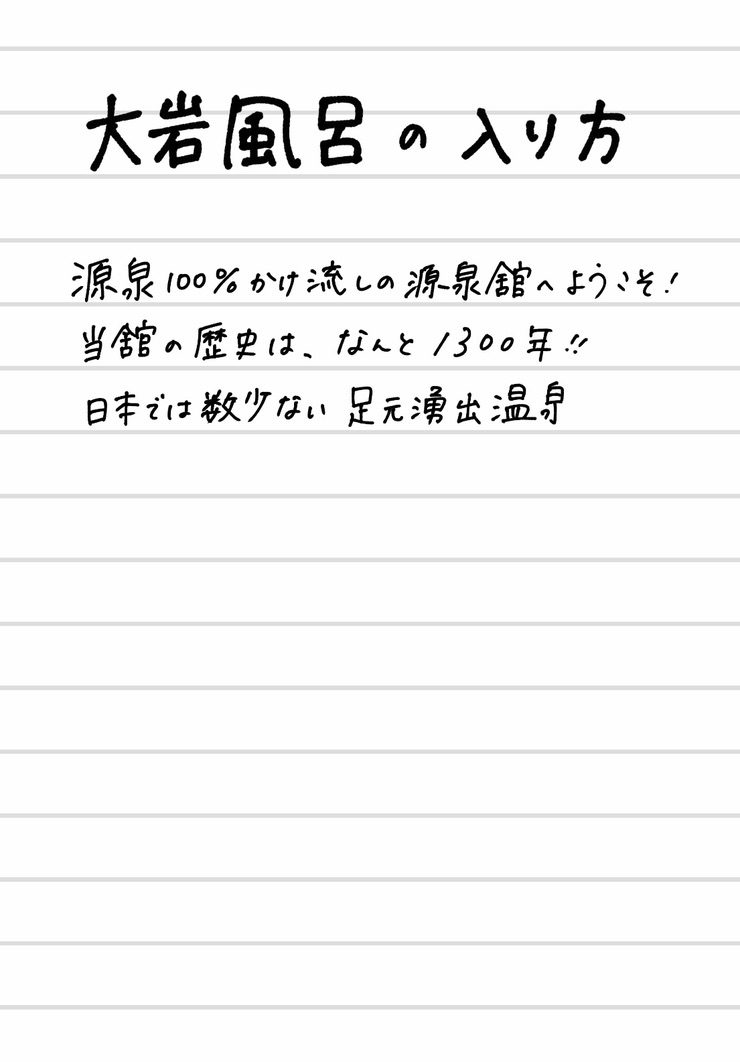 大岩風呂の入り方
源泉100%かけ流しの源泉舘へようこそ!
当舘の歴史は、なんと1300年!!
日本では数少ない足元湧出温泉